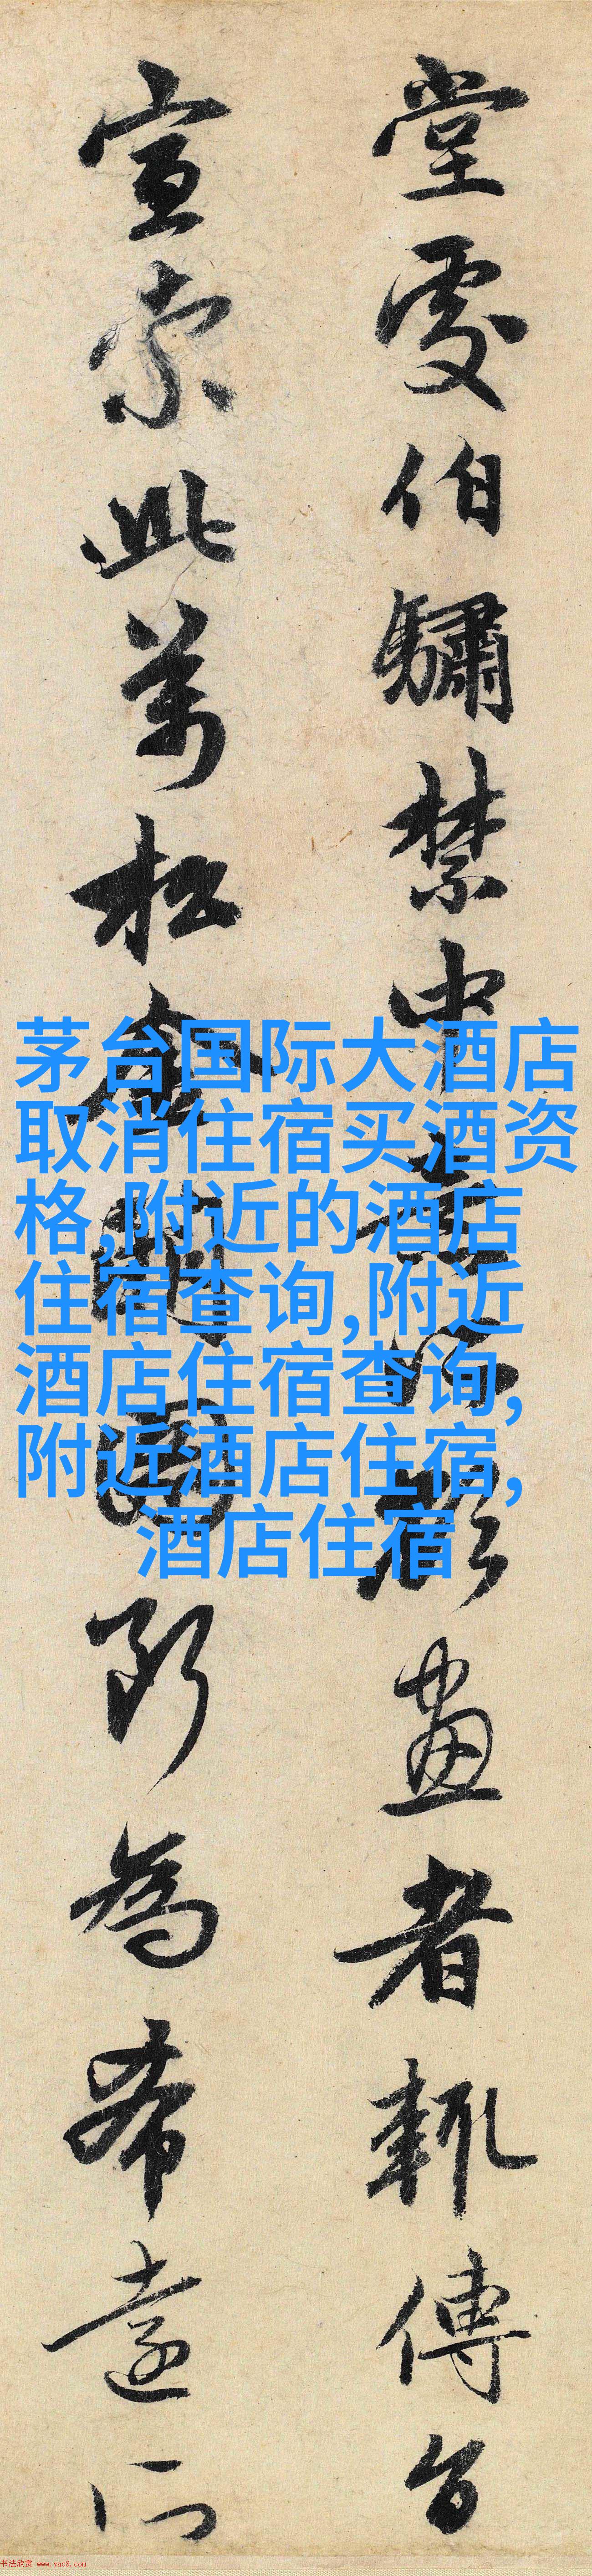 堂處伯驌禁中畫者輒傳旨
宣索此萬松金闕圖斷為希遠所
茅台国际大酒店
取消住宿买酒资
格,附近的酒店
住宿查询,附近
酒店住宿查询,
附近酒店住宿,
酒店住宿
书法欣赏 www.yac8.com